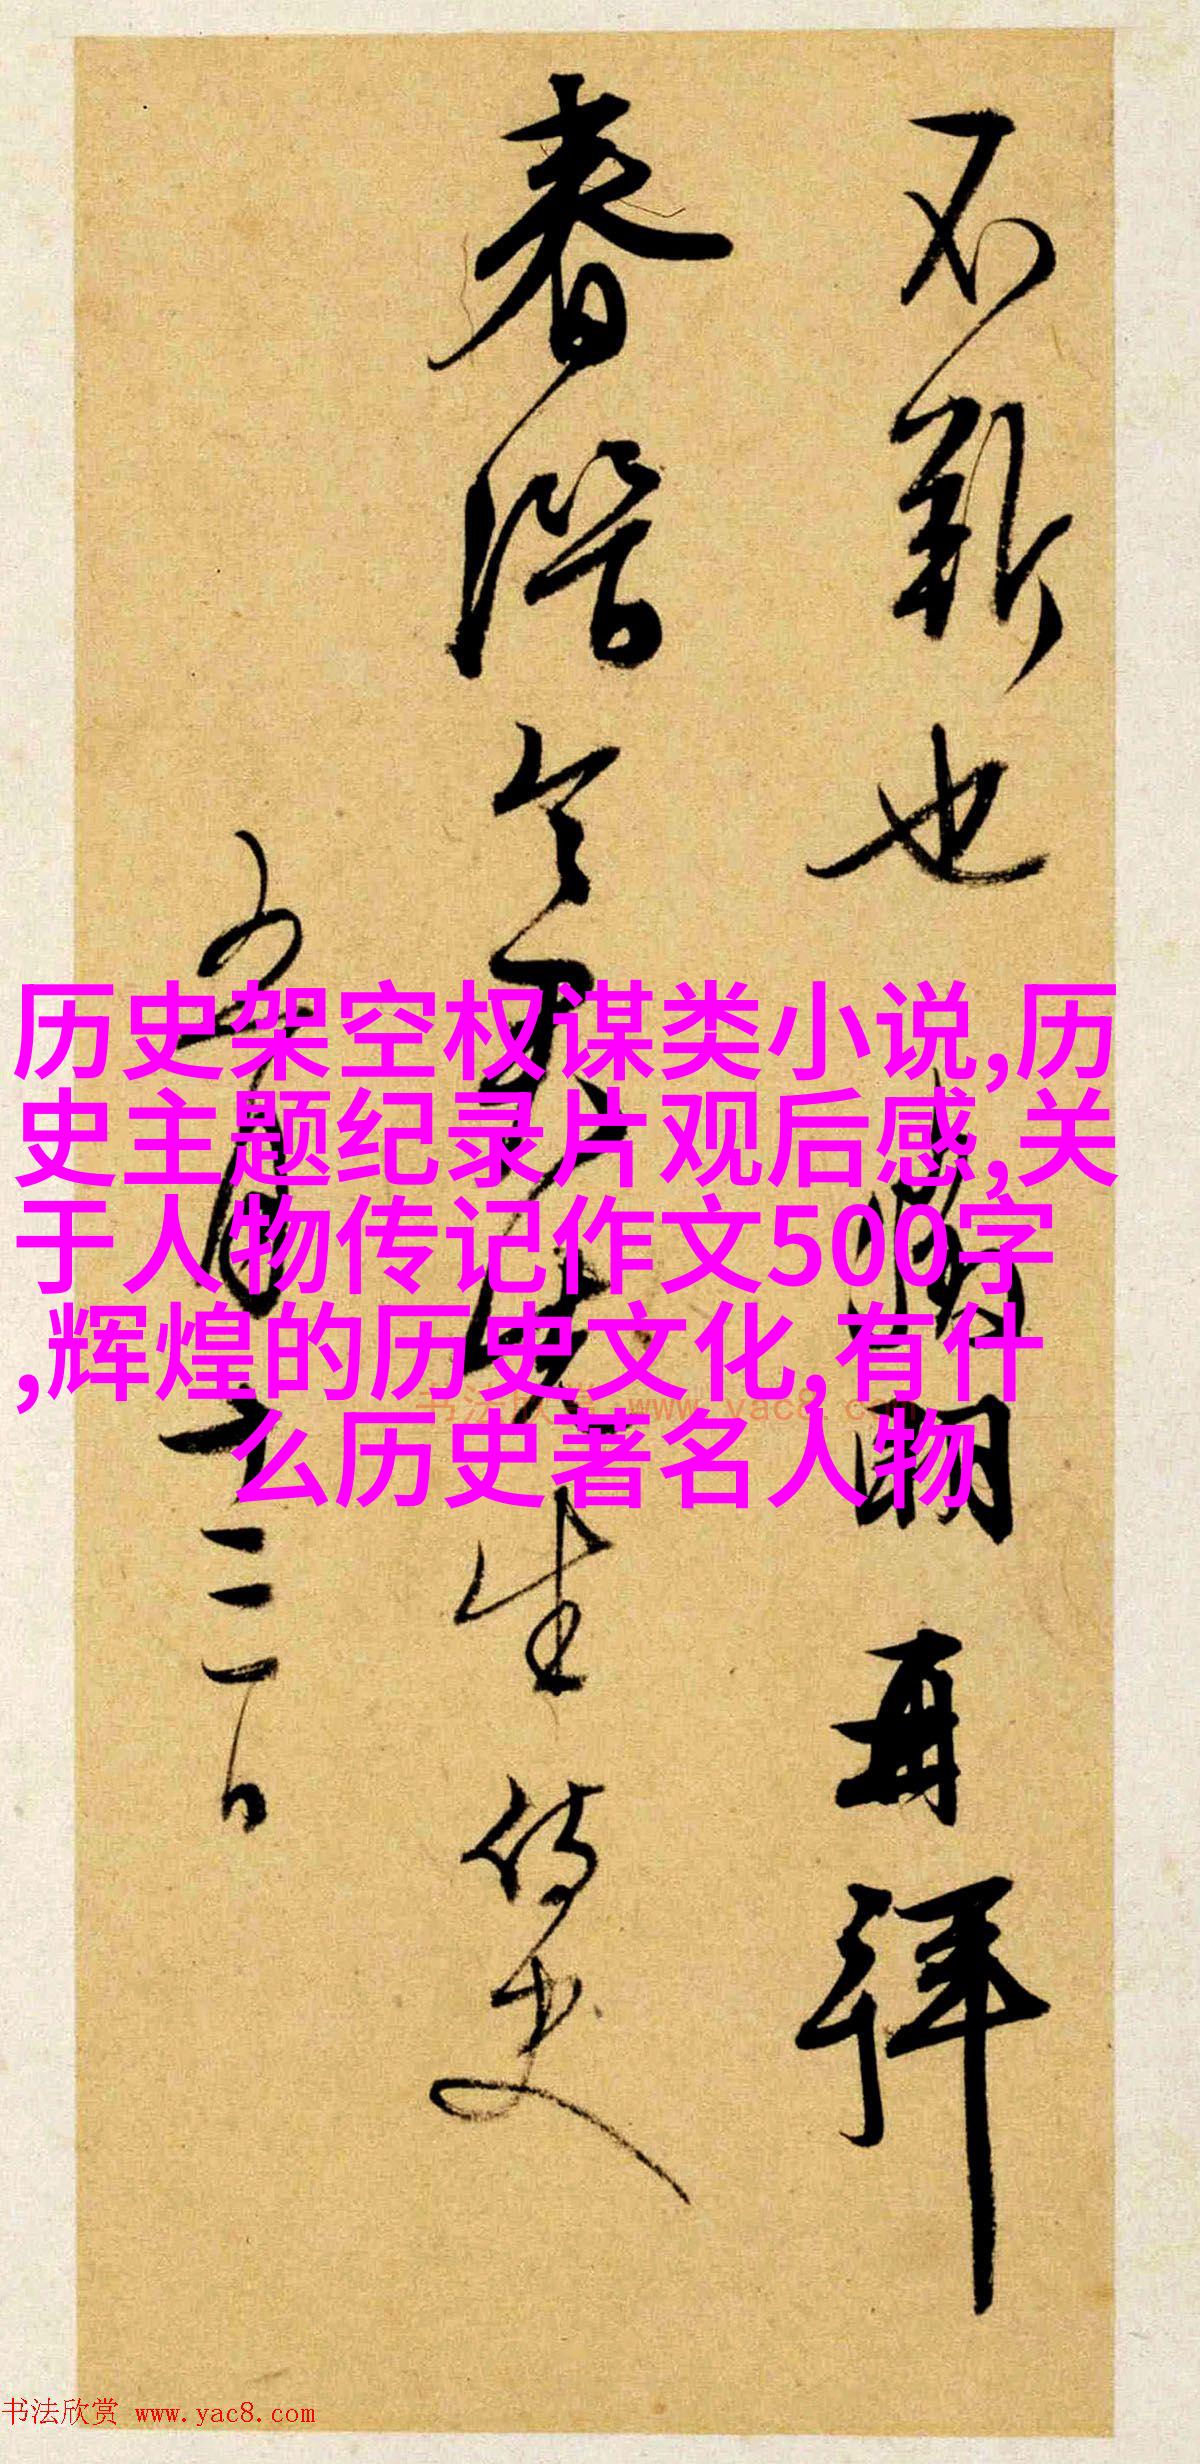 不斯也
再拜
春潛
生侍史
十三日
历史架空权谋类小说,历
史主题纪录片观后感,关
于人物传记作文500字
,辉煌的历史文化,有什
么历史著名人物
书法欣赏 www.yac8.com
书法欣赏 www.yac8.com